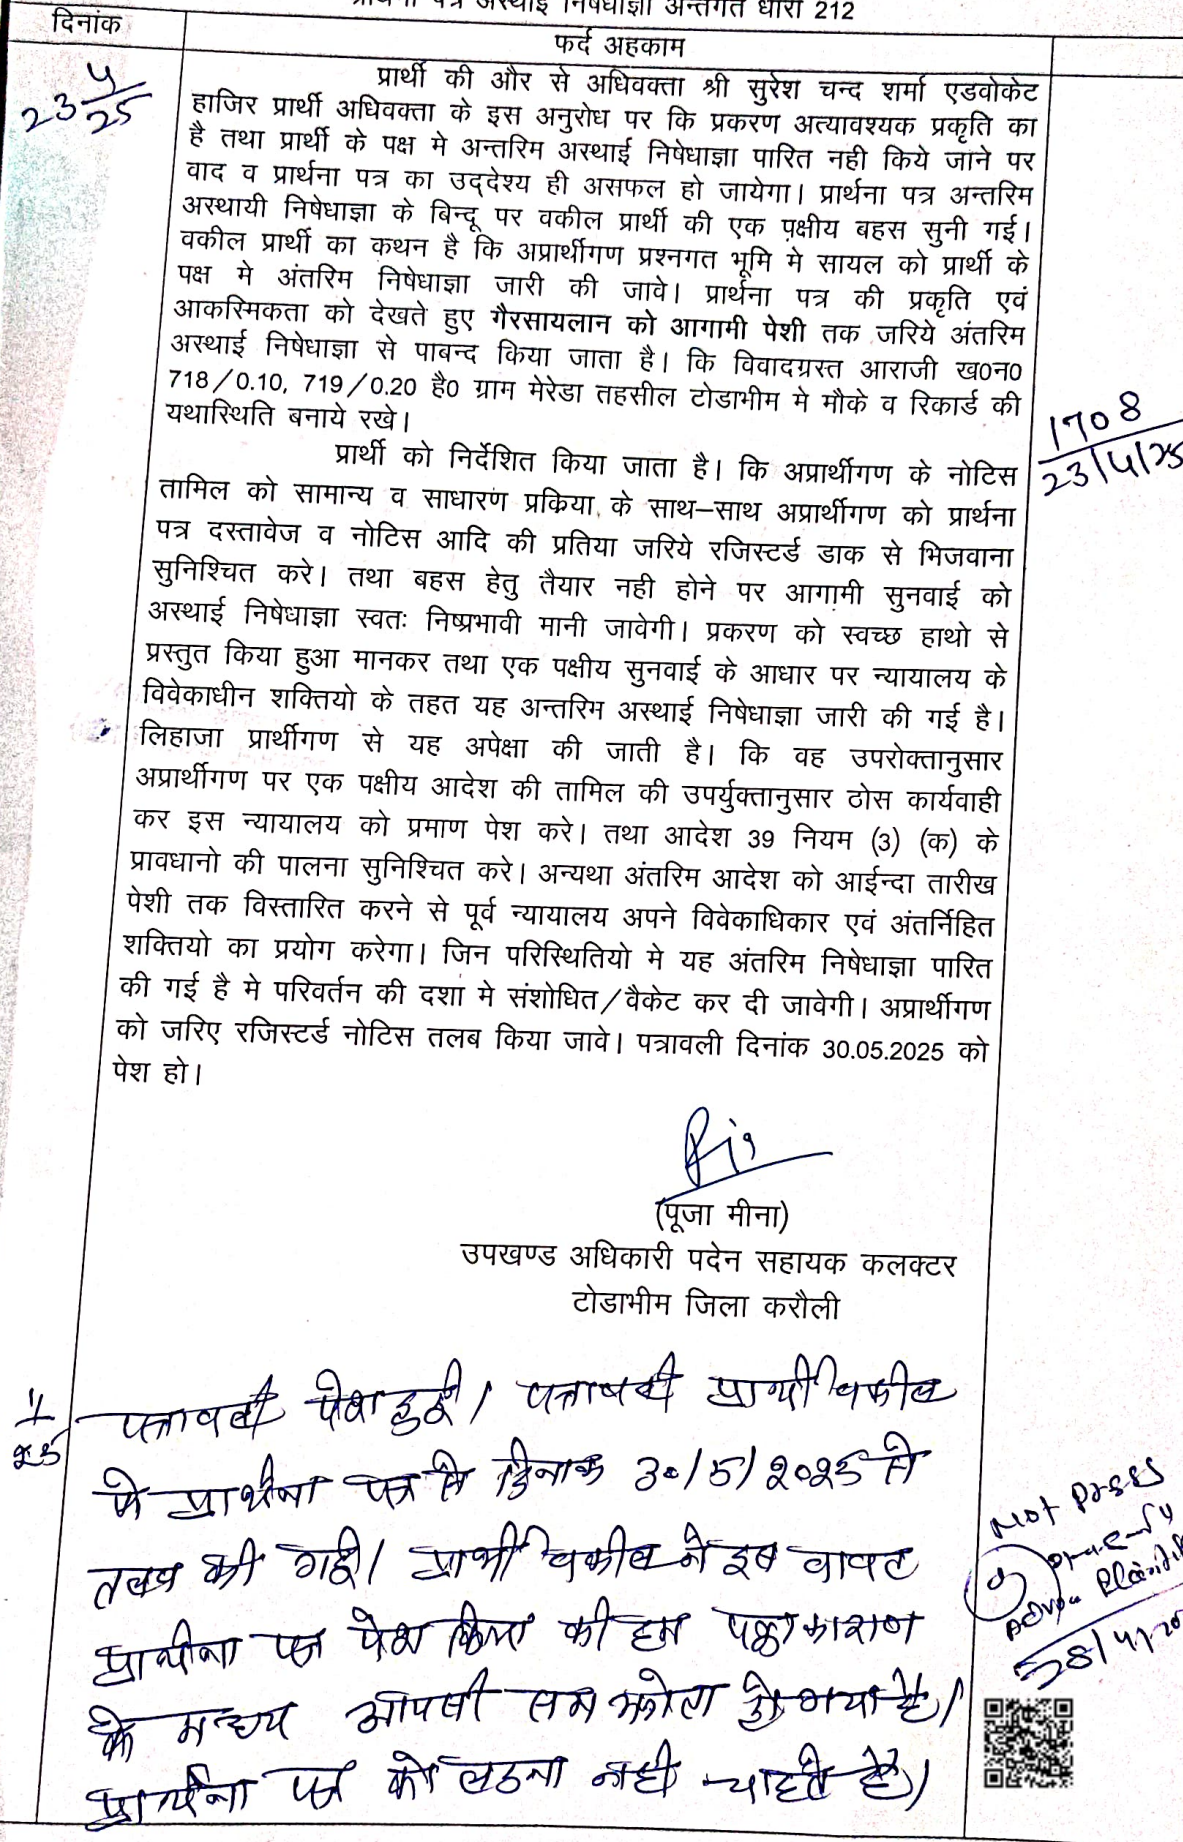 प्रार्थना पत्र अस्थाई निषेधाज्ञा अन्तर्गत धारा 212
दिनांक
फर्द अहकाम
23 4/25
प्रार्थी की और से अधिवक्ता श्री सुरेश चन्द शर्मा एडवोकेट
हाजिर प्रार्थी अधिवक्ता के इस अनुरोध पर कि प्रकरण अत्यावश्यक प्रकृति का
है तथा प्रार्थी के पक्ष मे अन्तरिम अस्थाई निषेधाज्ञा पारित नही किये जाने पर
वाद व प्रार्थना पत्र का उद्देश्य ही असफल हो जायेगा। प्रार्थना पत्र अन्तरिम
अस्थायी निषेधाज्ञा के बिन्दू पर वकील प्रार्थी की एक पक्षीय बहस सुनी गई।
वकील प्रार्थी का कथन है कि अप्रार्थीगण प्रश्नगत भूमि मे सायल को प्रार्थी के
पक्ष मे अंतरिम निषेधाज्ञा जारी की जावे। प्रार्थना पत्र की प्रकृति एवं
आकस्मिकता को देखते हुए गैरसायलान को आगामी पेशी तक जरिये अंतरिम
अस्थाई निषेधाज्ञा से पाबन्द किया जाता है। कि विवादग्रस्त आराजी ख0न0
718/0.10, 719/0.20 है0 ग्राम मेरेडा तहसील टोडाभीम मे मौके व रिकार्ड की
यथास्थिति बनाये रखे।
1708
23/4/25
प्रार्थी को निर्देशित किया जाता है। कि अप्रार्थीगण के नोटिस
तामिल को सामान्य व साधारण प्रकिया के साथ–साथ अप्रार्थीगण को प्रार्थना
पत्र दस्तावेज व नोटिस आदि की प्रतिया जरिये रजिस्टर्ड डाक से भिजवाना
सुनिश्चित करे। तथा बहस हेतु तैयार नही होने पर आगामी सुनवाई को
अस्थाई निषेधाज्ञा स्वतः निष्प्रभावी मानी जावेगी। प्रकरण को स्वच्छ हाथो से
प्रस्तुत किया हुआ मानकर तथा एक पक्षीय सुनवाई के आधार पर न्यायालय के
विवेकाधीन शक्तियो के तहत यह अन्तरिम अस्थाई निषेधाज्ञा जारी की गई है।
लिहाजा प्रार्थीगण से यह अपेक्षा की जाती है। कि वह उपरोक्तानुसार
अप्रार्थीगण पर एक पक्षीय आदेश की तामिल की उपर्युक्तानुसार ठोस कार्यवाही
कर इस न्यायालय को प्रमाण पेश करे। तथा आदेश 39 नियम (3) (क) के
प्रावधानो की पालना सुनिश्चित करे। अन्यथा अंतरिम आदेश को आईन्दा तारीख
पेशी तक विस्तारित करने से पूर्व न्यायालय अपने विवेकाधिकार एवं अंतर्निहित
शक्तियो का प्रयोग करेगा। जिन परिस्थितियो मे यह अंतरिम निषेधाज्ञा पारित
की गई है मे परिवर्तन की दशा मे संशोधित/वैकेट कर दी जावेगी। अप्रार्थीगण
को जरिए रजिस्टर्ड नोटिस तलब किया जावे। पत्रावली दिनांक 30.05.2025 को
पेश हो।
(पूजा मीना)
उपखण्ड अधिकारी पदेन सहायक कलक्टर
टोडाभीम जिला करौली
पत्रावली पेश हुई। पत्रावली प्रार्थी वकील
के प्रार्थना पत्र से दिनांक 30/5/2025 से
तलब की गई। प्रार्थी वकील ने इस बाबत
प्रार्थना पत्र पेश किया की हम पक्षकारान
के मध्य आपसी समझोता हो गया है।
प्रार्थना पत्र को लडना नही चाहते है।
Not press